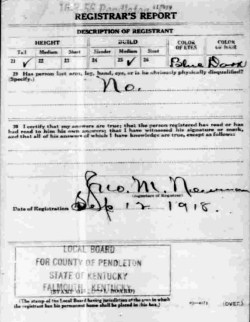 REGISTRAR'S REPORT
DESCRIPTION OF REGISTRANT
HEIGHT BUILD COLOR OF EYES COLOR OF HAIR
Tall Medium Short Slender Medium Stout
21 ✓ 22 23 24 25 ✓ 26 Blue Dark
29 Has person lost arm, leg, hand, eye, or is he obviously physically disqualified?
(Specify.)
No.
30 I certify that my answers are true; that the person registered has read or has
had read to him his own answers; that I have witnessed his signature or mark,
and that all of his answers of which I have knowledge are true, except as follows:
M.
Date of Registration Sep 12 1918.
LOCAL BOARD
FOR COUNTY OF PENDLETON
STATE OF KENTUCKY
FALMOUTH, KENTUCKY
(The stamp of the Local Board having jurisdiction of the area in which
the registrant has his permanent home shall be placed in this box.)
(OVER)